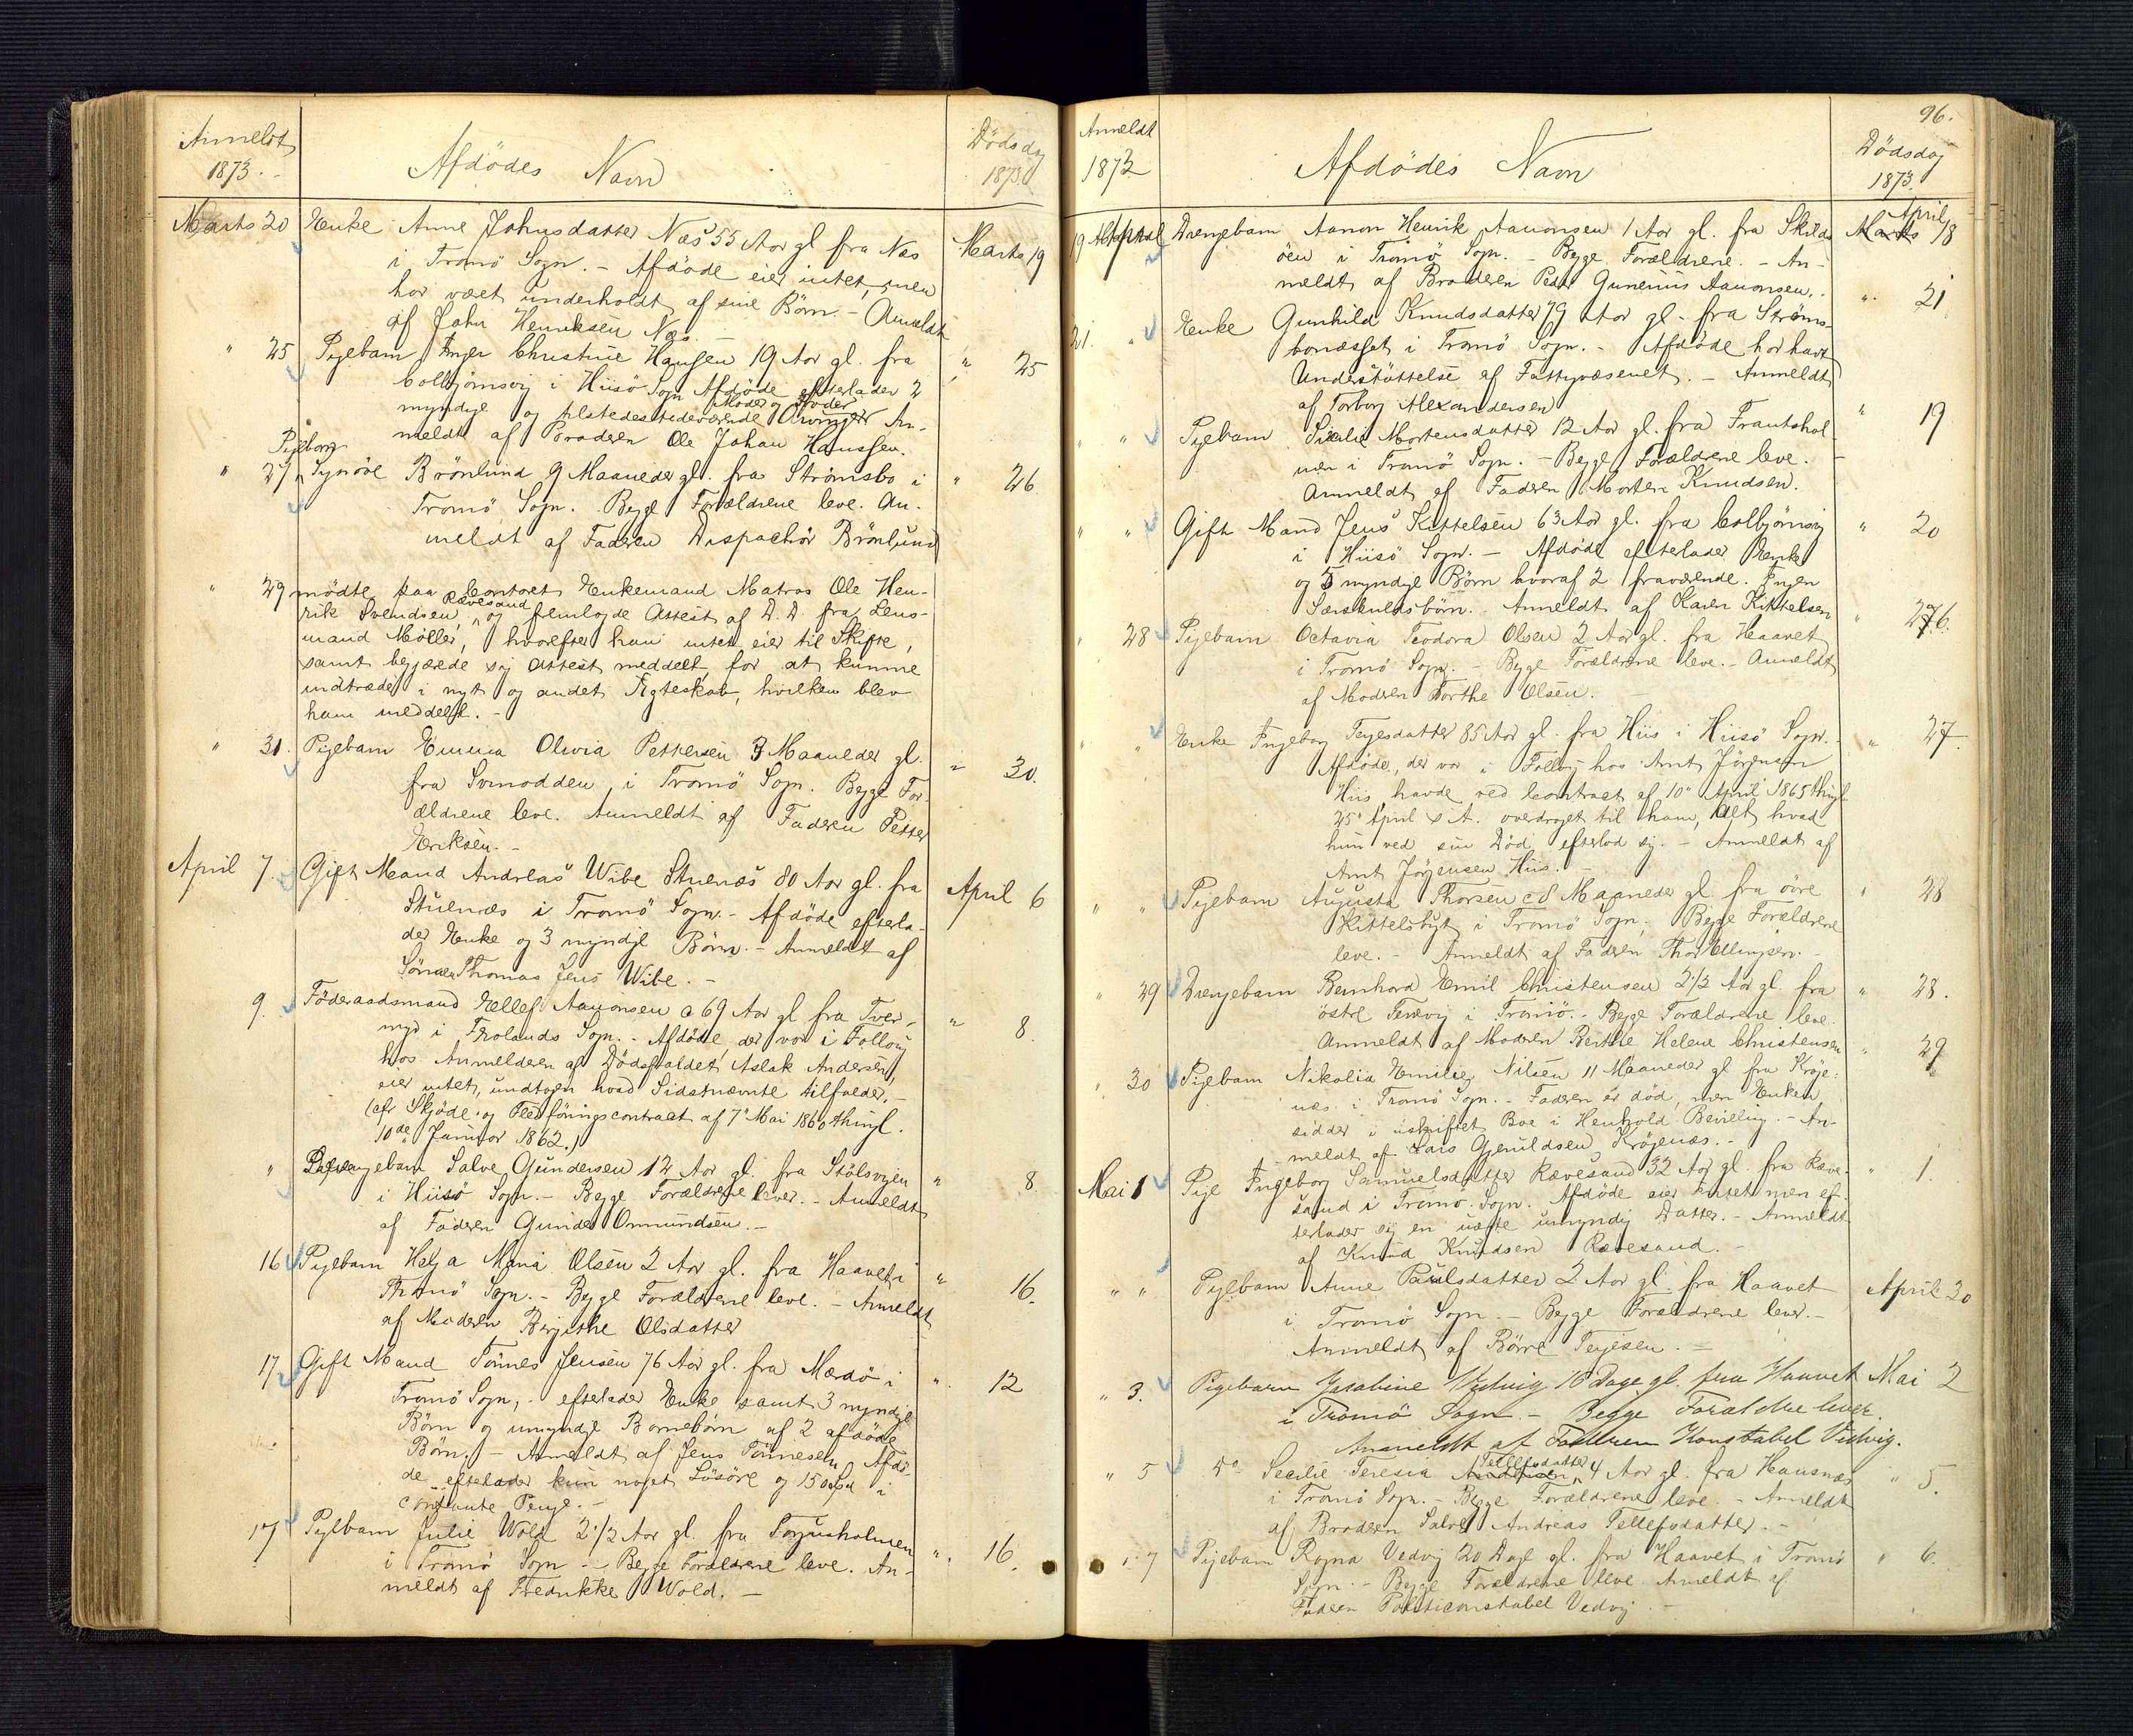 Anmeldt
1873.
Afdödes Navn
Dödsdag
1873.
Marts 20 Enke Anne Johnsdatter Næs 55 Aar gl fra Næs Marts 19
i Tromö Sogn. - Afdöde eier intet, men
har været underholdt af sine Börn. - Anmeldt
af John Henriksen Næs. -
" 25 Pigebarn Inger Christine Hansen 19 Aar gl. fra " 25
Colbjörnsvig i Hiisö Sogn Afdöde efterlader 2
Moder og Broder
myndige og tilstedeværende Arvinger An-
meldt af Broderen Ole Johan Hanssen.
Pigebarn
" 27 Synöve Brönlund 9 Maaneder gl. fra Strömsbo i " 26.
Tromö Sogn. Begge Forældrene leve. An-
meldt af Faderen Dispachör Brönlund
" 29 mödte paa Contoret Enkemand Matros Ole Hen-
rik Svendsen Rævesand og fremlagde Attest af D. D. fra Lens-
mand Möller, hvorefter han intet eier til Skifte,
samt begjærede sig Attest meddelt, for at kunne
indtræde i nyt og andet Ægteskab, hvilken blev
ham meddelt. -
" 31. Pigebarn Emma Olivia Pettersen 3 Maaneder gl. " 30.
fra Svinodden i Tromö Sogn. Begge For-
ældrene leve. Anmeldt af Faderen Petter
Eriksen. -
April 7. Gift Mand Andreas Wibe Stuenæs 80 Aar gl. fra April 6
Stuenæs i Tromö Sogn. - Afdöde efterla-
der Enke og 3 myndige Börn. - Anmeldt af
Sönnen Thomas Jens Wibe. -
9. Föderaadsmand Ellef Aanonsen c 69 Aar gl fra Tver- " 8.
myr i Frolands Sogn. - Afdöde, der var i Follog
hos Anmelderen af Dödsfaldet Aslak Andersen,
eier intet, undtagen hvad Sidstnævnte tilfalder. -
(cfr Skjöde og Flædföringscontract af 7de Mai 1860 thingl.
10de Januar 1862.)
" Drengebarn Salve Gundersen 12 Aar gl. fra Stölsvigen " 8.
i Hiisö Sogn. - Begge Forældrene lever. - Anmeldt
af Faderen Gunder Ommundsen. -
16 Pigebarn Helga Maria Olsen 2 Aar gl. fra Haavet i " 16.
Tromö Sogn. - Begge Forældrene leve. - Anmeldt
af Moderen Bergithe Olsdatter
17. Gift Mand Tönnes Jensen 76 Aar gl. fra Mærdö i " 12
Tromö Sogn, - efterlader Enke samt 3 myndige
Börn og umyndige Börnebörn af 2 afdöde
Börn. - Anmeldt af Jens Tönnesen Afdö-
de efterlader kun noget Lösöre og 150 Spd i
contante Penge. -
17 Pigebarn Julie Wold 2 1/2 Aar gl. fra Torjusholmen " 16.
i Tromö Sogn - Begge Forældrene leve. An-
meldt af Fredrikke Wold. -
96.
Anmeldt
1873
Afdödes Navn
Dödsdag
1873.
19 April Drengebarn Aanon Henrik Aanonsen 1 Aar gl. fra Skilds- April 18
öen i Tromö Sogn. - Begge Forældrene. - An-
meldt af Broderen Peder Gunerius Aanonsen.
21. " Enke Gunhild Knudsdatter 79 Aar gl. fra Ströms- " 21
bonæsset i Tromö Sogn. - Afdöde har havt
Understöttelse af Fattigvæsenet. - Anmeldt
af Torborg Alexandersen
" " Pigebarn Sicelie Mortensdatter 12 Aar gl. fra Frantshol- " 19
men i Tromö Sogn. - Begge Forældrene leve. -
Anmeldt af Faderen Morten Knudsen.
" " Gift Mand Jens Kittelsen 63 Aar gl. fra Colbjörnsvig " 20
i Hiisö Sogn. - Afdöde efterlader Enke
og 5 myndige Börn hvoraf 2 fraværende. Ingen
Særskuldsbörn. - Anmeldt af Karen Kittelsen
" 28 Pigebarn Octavia Teodora Olsen 2 Aar gl. fra Haavet " 26.
i Tromö Sogn. - Begge Forældrene leve. - Anmeldt
af Moderen Dorthe Olsen. -
" " Enke Ingeborg Terjesdatter 85 Aar gl. fra Hiis i Hiisö Sogn. - " 27.
Afdöde, der var i Follog hos Arnt Jörgensen
Hiis havde ved Contract af 10de April 1865 thingl
25de April s. A. overdraget til ham, Alt hvad
hun ved sin Död efterlod sig. - Anmeldt af
Arnt Jörgensen Hiis. -
" " Pigebarn Augusta Thorsen c 8 Maaneder gl. fra övre " 28
Kittelsbygt i Tromö Sogn, Begge Forældrene
leve. - Anmeldt af Faderen Thor Ellingsen. -
" 29 Drengebarn Bernhard Emil Christensen 2 1/2 Aar gl. fra " 28.
östre Tervig i Tromö. - Begge Forældrene leve.
Anmeldt af Moderen Berthe Helene Christensen
" 30 Pigebarn Nikolia Emilie Nilsen 11 Maaneder gl fra Kröge- " 29
næs i Tromö Sogn. - Faderen er död, men Enken
sidder i uskiftet Bo i Henhold Bevilling. - An-
meldt af Lars Gjeruldsen Krögenæs. -
Mai 1 Pige Ingeborg Samuelsdatter Rævesand 32 Aar gl. fra Ræve- " 1.
sand i Tromö Sogn. Afdöde eier Intet men ef-
terlader sig en uægte umyndig Datter. - Anmeldt
af Knud Knudsen Rævesand. -
" " Pigebarn Anne Paulsdatter 2 Aar gl. fra Haavet April 30
i Tromö Sogn. - Begge Forældrene lever. -
Anmeldt af Börre Terjesen. -
" 3. Pigebarn Jacobine Vedvig 16 Dage gl. fra Haavet Mai 2
i Tromö Sogn. - Begge Forældre lever.
Anmeldt af Faderen Konstabel Vedvig.
" 5 do Secilie Teresia Tellefsdatter 4 Aar gl. fra Hausnæs " 5.
i Tromö Sogn. - Begge Forældrene leve. - Anmeldt
af Broderen Salve Andreas Tellefsdatter. -
" 7 Pigebarn Ragna Vedvig 20 Dage gl. fra Haavet i Tromö " 6.
Sogn. - Begge Forældrene leve. Anmeldt af
Faderen Politiconstabel Vedvig -